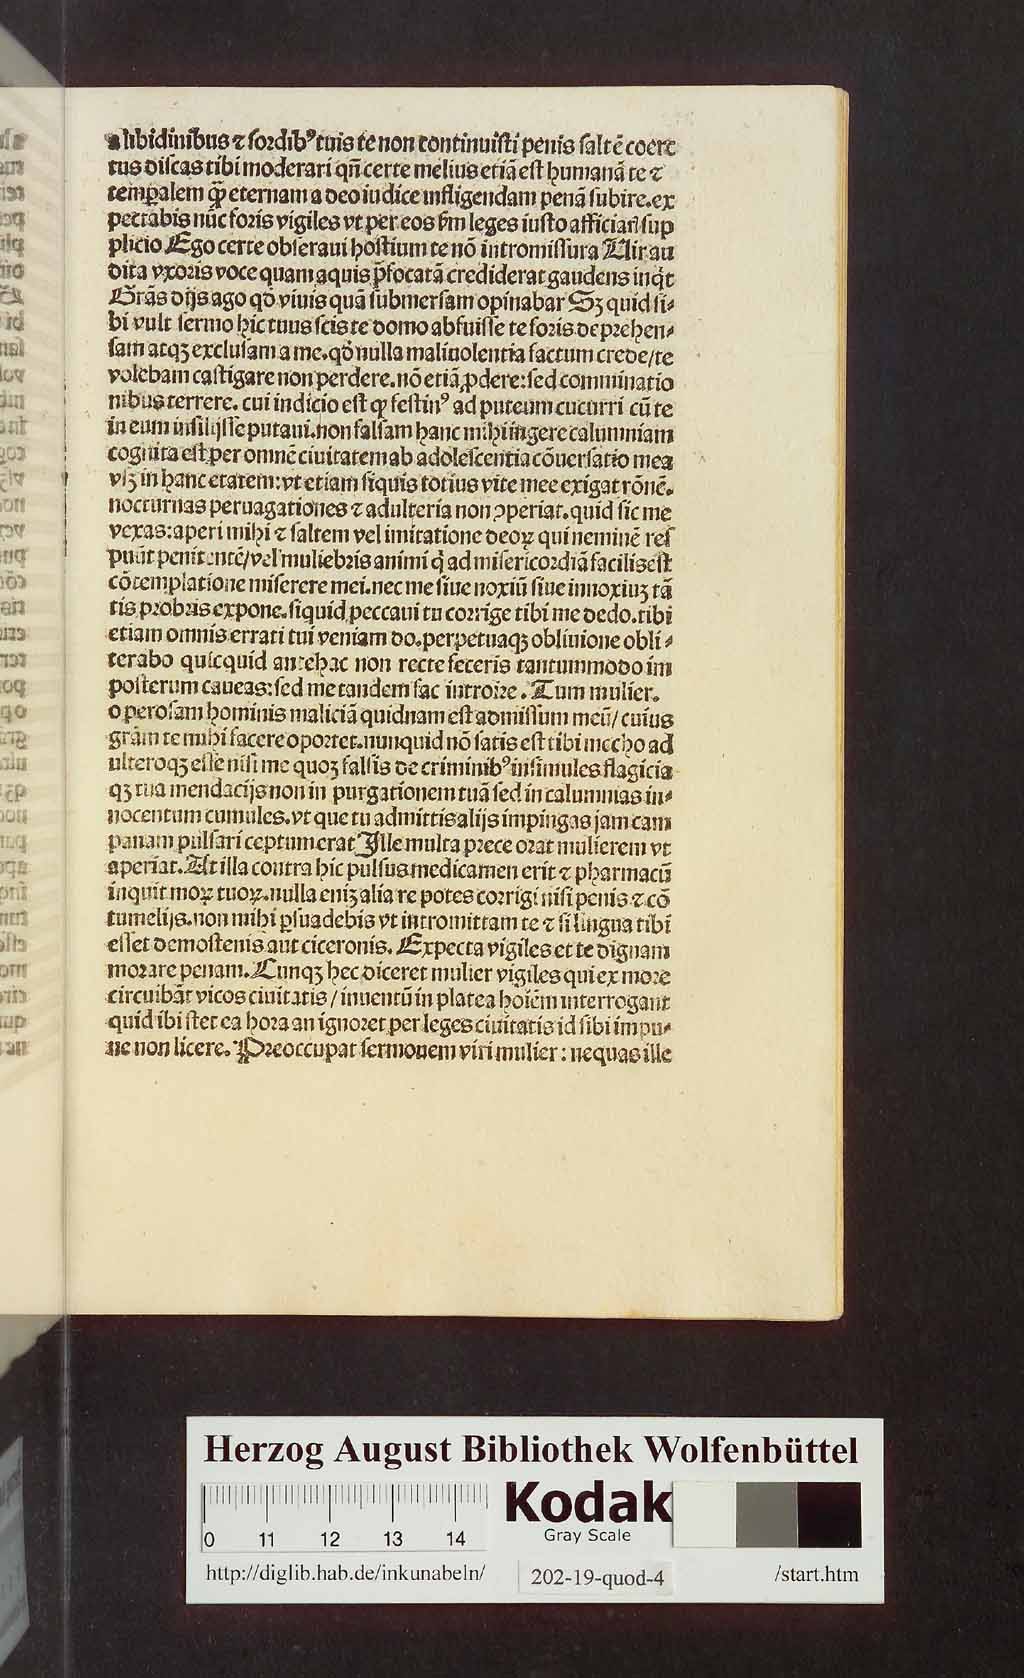 a libidinibus ⁊ sordibꝰ tuis te non continuisti penis saltē coerc
tus discas tibi moderari qñ certe melius etiā est humanā te ⁊
temꝑalem q̄ꝫ eternam a deo iudice infligendam penā subire. ex
pectabis nūc foris vigiles vt per eos ẜm leges iusto afficiari sup
plicio Ego certe obseraui hostium te nō intromissura Uir au
dita vxoris voce quam aquis p̄focatā crediderat gaudens inq̇t
Grās dijs ago qd viuis quā submersam opinabar Sꝫ quid si⸗
bi vult sermo hic tuus scis te domo abfuisse te foris deprehen⸗
sam atqꝫ exclusam a me. qd nulla maliuolentia factum crede/te
volebam castigare non perdere. nō etiā ꝓdere: sed comminatio
nibus terrere. cui indicio est ꝙ festinꝰ ad puteum cucurri cū te
in eum insilijsse putaui. non falsam hanc mihi ingere calumniam
cognita est per omnē ciuitatem ab adolescentia cōuersatio mea
vsꝫ in hanc etatem: vt etiam siquis totius vite mee exigat rōnē.
nocturnas peruagationes ⁊ adulteria non ꝯperiat. quid sic me
vexas: aperi mihi ⁊ saltem vel imitatione deoꝝ qui neminē res
puūt penitentē/vel muliebris animi q̇ ad misericordiā facilis est
cōtemplatione miserere mei. nec me siue noxiū siue innoxiuꝫ tā
tis probris expone. siquid peccaui tu corrige tibi me dedo. tibi
etiam omnis errati tui veniam do. perpetuaqꝫ obliuione obli⸗
terabo quicquid antehac non recte feceris tantummodo im
posterum caueas: sed me tandem fac introire. Tum mulier.
o perosam hominis maliciā quidnam est admissum meū/ cuius
grām te mihi facere oportet. nunquid nō satis est tibi mecho ad
ulteroqꝫ esse nisi me quoꝫ falsis de criminibꝰ insimules flagicia
qꝫ tua mendacijs non in purgationem tuā sed in calumnias in⸗
nocentum cumules. vt que tu admittis alijs impingas jam cam
panam pulsari ceptum erat Ille multa prece orat mulierem vt
aperiat. At illa contra hic pulsus medicamen erit ⁊ pharmacū
inquit moꝝ tuoꝝ. nulla eniꝫ alia re potes corrigi nisi penis ⁊ cō
tumelijs. non mihi ꝑsuadebis vt intromittam te ⁊ si lingua tibi
esset demostenis aut ciceronis. Expecta vigiles et te dignam
morare penam. Cunqꝫ hec diceret mulier vigiles qui ex more
circuibāt vicos ciuitatis / inuentū in platea hoīem interrogant
quid ibi stet ea hora an ignoret per leges ciuitatis id sibi impu⸗
ne non licere. Preoccupat sermonem viri mulier: nequas ille
Herzog August Bibliothek Wolfenbüttel
Kodak
Gray Scale
0 11 12 13 14
http://diglib.hab.de/inkunabeln/ 202-19-quod-4 /start.htm